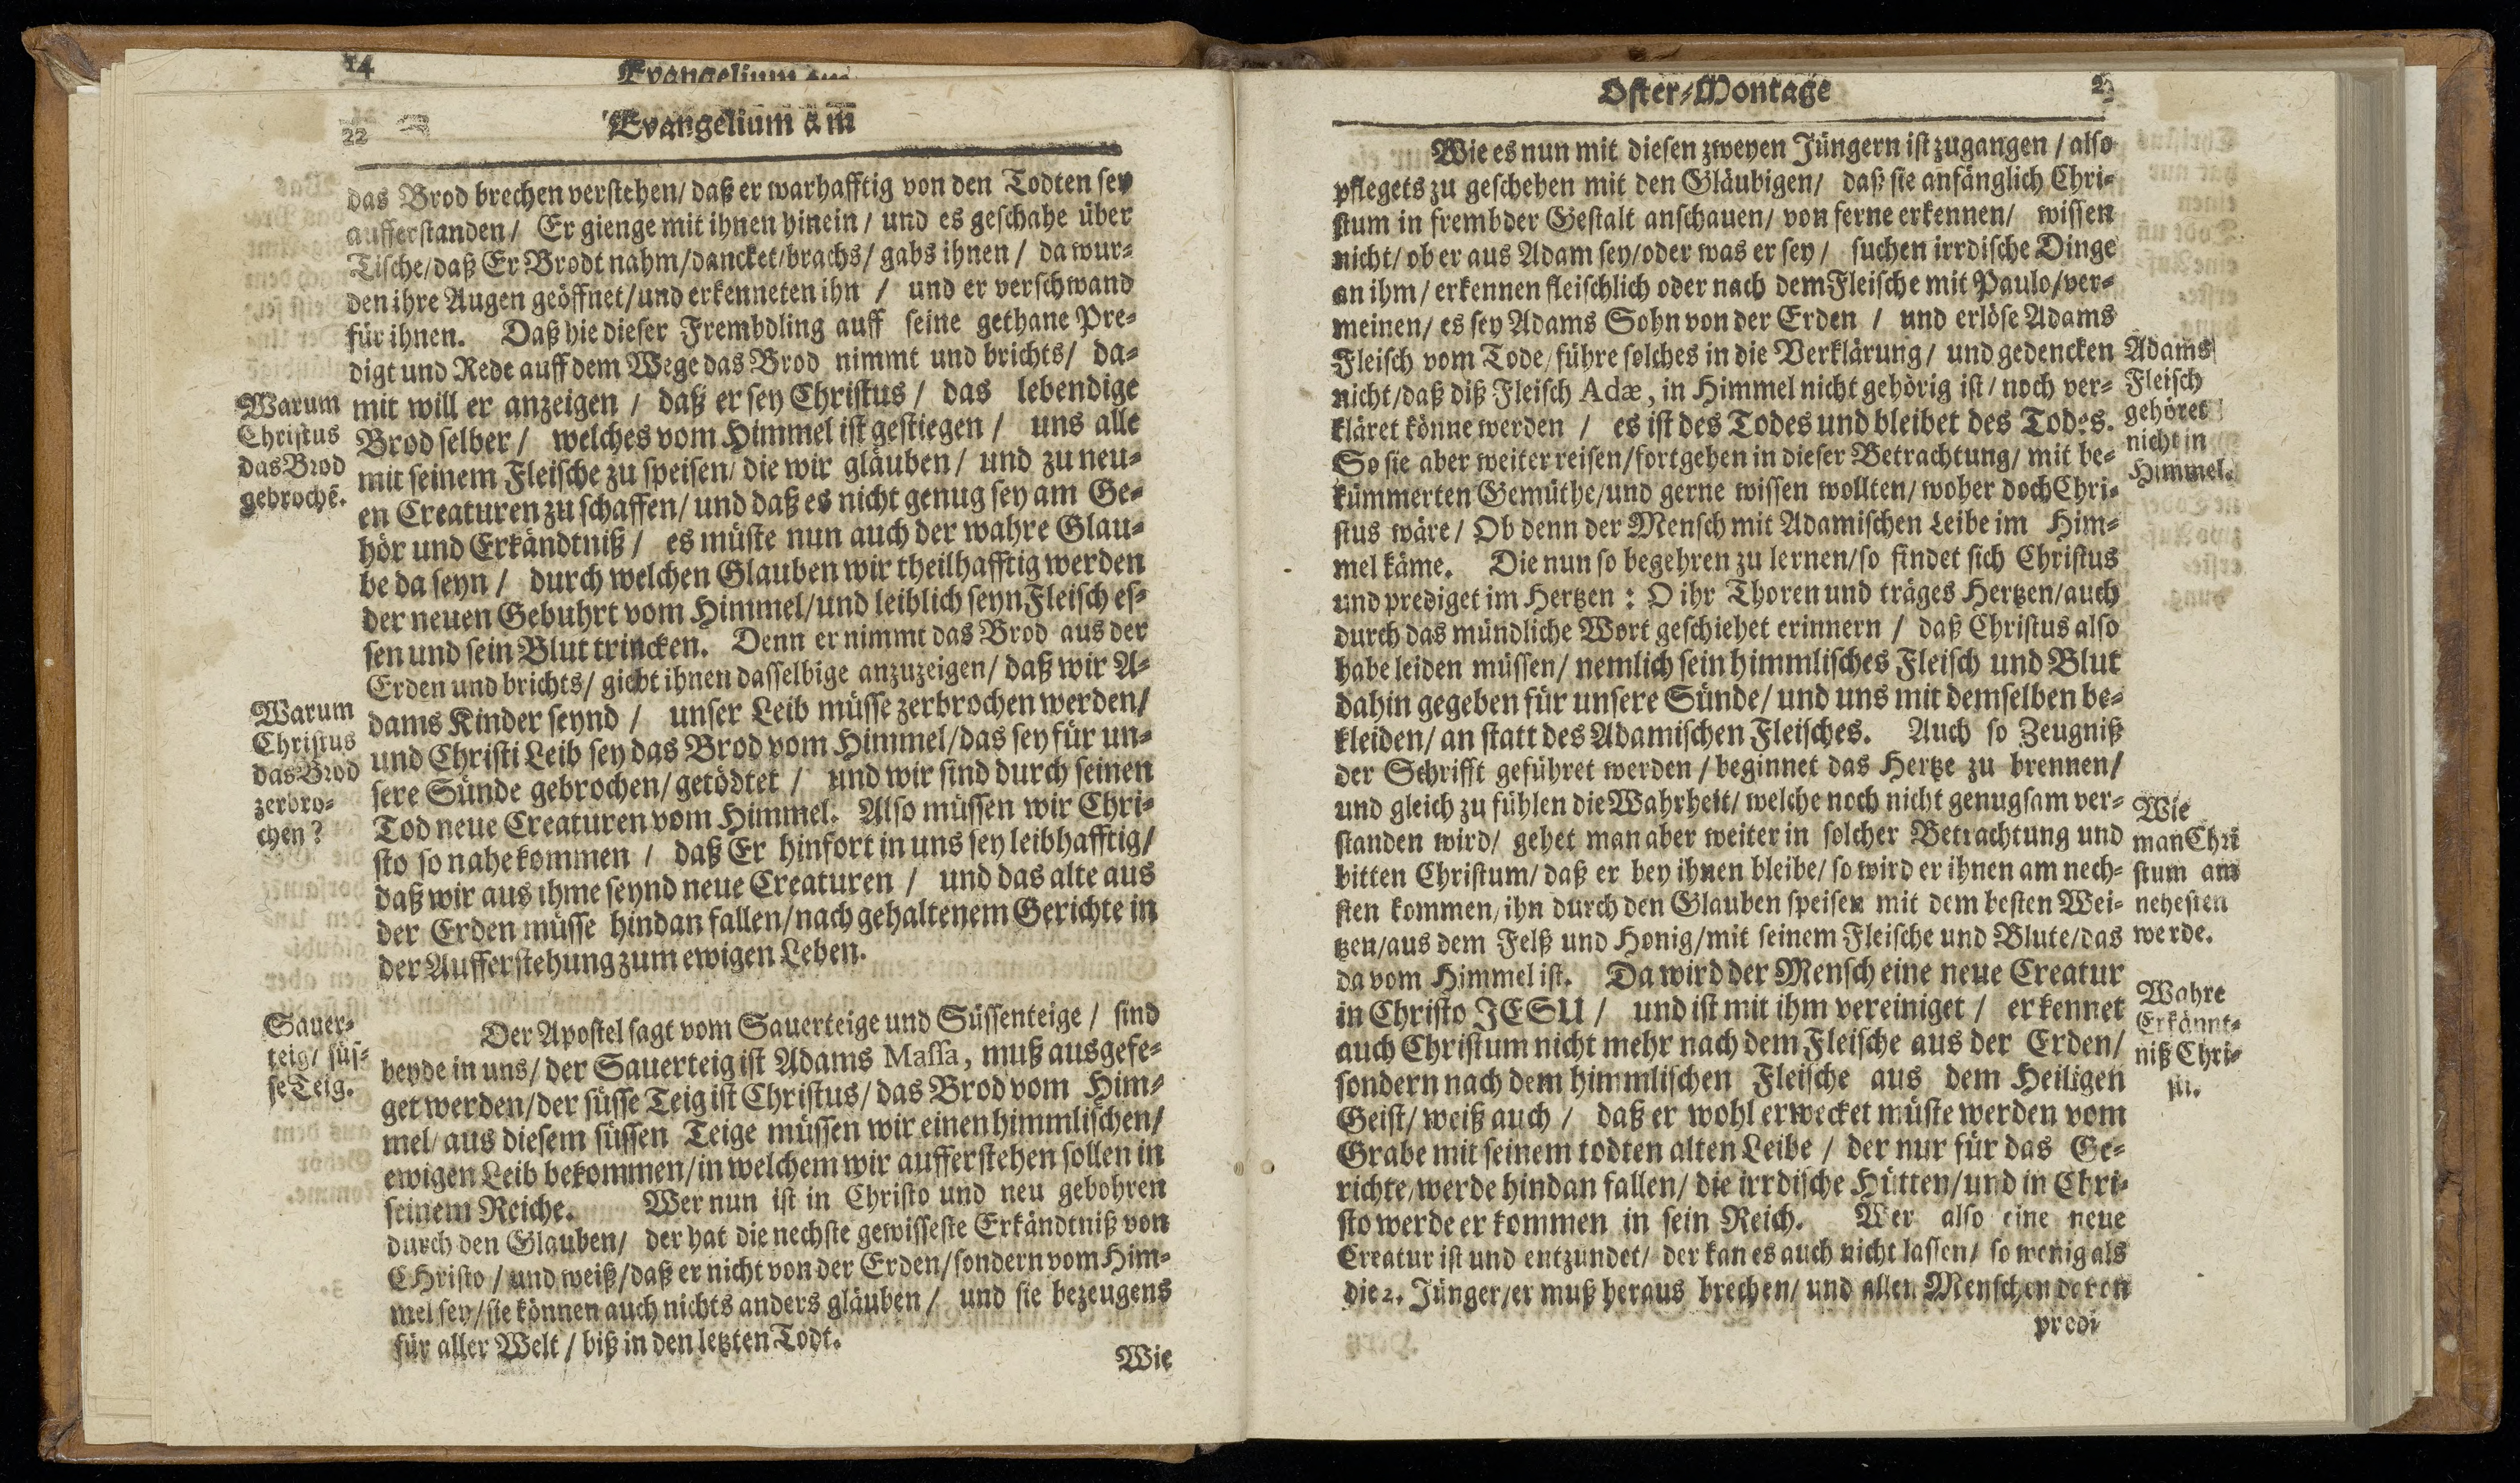 14
Evangelium am
22
Evangelium am
das Brod brechen verstehen/ daß er warhafftig von den Todten sey
aufferstanden/ Er gienge mit ihnen hinein/ und es geschahe über
Tische/daß Er Brodt nahm/dancket/brachs/ gabs ihnen/ da wur-
den ihre Augen geöffnet/und erkenneten ihn / und er verschwand
für ihnen. Daß hie dieser Frembdling auff seine gethane Pre-
digt und Rede auff dem Wege das Brod nimmt und brichts/ da-
mit will er anzeigen / daß er sey Christus / das lebendige
Brod selber / welches vom Himmel ist gestiegen / uns alle
mit seinem Fleische zu speisen/ die wir gläuben/ und zu neu-
en Creaturen zu schaffen/ und daß es nicht genug sey am Ge-
hör und Erkändtniß / es müste nun auch der wahre Glau-
be da seyn / durch welchen Glauben wir theilhafftig werden
der neuen Gebuhrt vom Himmel/und leiblich seyn Fleisch es-
sen und sein Blut trincken. Denn er nimmt das Brod aus der
Erden und brichts/ giebt ihnen dasselbige anzuzeigen/ daß wir A-
dams Kinder seynd / unser Leib müsse zerbrochen werden/
und Christi Leib sey das Brod vom Himmel/das sey für un-
sere Sünde gebrochen/getödtet / und wir sind durch seinen
Tod neue Creaturen vom Himmel. Also müssen wir Chri-
sto so nahe kommen / daß Er hinfort in uns sey leibhafftig/
daß wir aus ihme seynd neue Creaturen / und das alte aus
der Erden müsse hindan fallen/nach gehaltenem Gerichte in
der Aufferstehung zum ewigen Leben.
Warum
Christus
das Brod
gebrochẽ.
Warum
Christus
das Brod
zerbro-
chen?
Der Apostel sagt vom Sauerteige und Süssenteige / sind
beyde in uns/ der Sauerteig ist Adams Massa, muß ausgefe-
get werden/der süsse Teig ist Christus/das Brod vom Him-
mel/ aus diesem süssen Teige müssen wir einen himmlischen/
ewigen Leib bekommen/in welchem wir aufferstehen sollen in
seinem Reiche. Wer nun ist in Christo und neu gebohren
durch den Glauben/ der hat die nechste gewisseste Erkändtniß von
CHristo / und weiß/daß er nicht von der Erden/sondern vom Him-
mel sey/sie können auch nichts anders gläuben / und sie bezeugens
für aller Welt / biß in den letzten Todt.
Sauer-
teig/ süs-
se Teig.
Wie
Oster-Montage
Wie es nun mit diesen zweyen Jüngern ist zugangen / also
pflegets zu geschehen mit den Gläubigen/ daß sie anfänglich Chri-
stum in frembder Gestalt anschauen/ von ferne erkennen/ wissen
nicht/ ob er aus Adam sey/oder was er sey / suchen irrdische Dinge
an ihm / erkennen fleischlich oder nach dem Fleische mit Paulo/ver-
meinen/ es sey Adams Sohn von der Erden / und erlöse Adams
Fleisch vom Tode/ führe solches in die Verklärung / und gedencken
nicht/daß diß Fleisch Adæ, in Himmel nicht gehörig ist / noch ver-
kläret könne werden / es ist des Todes und bleibet des Todes.
So sie aber weiter reisen/fortgehen in dieser Betrachtung/ mit be-
kümmerten Gemüthe/und gerne wissen wollten/ woher doch Chri-
stus wäre / Ob denn der Mensch mit Adamischen Leibe im Him-
mel käme. Die nun so begehren zu lernen/so findet sich Christus
und prediget im Hertzen : O ihr Thoren und träges Hertzen/auch
durch das mündliche Wort geschiehet erinnern / daß Christus also
habe leiden müssen/ nemlich sein himmlisches Fleisch und Blut
dahin gegeben für unsere Sünde/ und uns mit demselben be-
kleiden/ an statt des Adamischen Fleisches. Auch so Zeugniß
der Schrifft geführet werden / beginnet das Hertze zu brennen/
und gleich zu fühlen die Wahrheit/ welche noch nicht genugsam ver-
standen wird/ gehet man aber weiter in solcher Betrachtung und
bitten Christum/ daß er bey ihnen bleibe/ so wird er ihnen am nech-
sten kommen/ihn durch den Glauben speisen mit dem besten Wei-
tzen/aus dem Felß und Honig/mit seinem Fleische und Blute/das
da vom Himmel ist. Da wird der Mensch eine neue Creatur
in Christo JESU / und ist mit ihm vereiniget / erkennet
auch Christum nicht mehr nach dem Fleische aus der Erden/
sondern nach dem himmlischen Fleische aus dem Heiligen
Geist/ weiß auch / daß er wohl erwecket müste werden vom
Grabe mit seinem todten alten Leibe / der nur für das Ge-
richte/werde hindan fallen/ die irrdische Hütten/und in Chri-
sto werde er kommen in sein Reich. Wer also eine neue
Creatur ist und entzündet/ der kan es auch nicht lassen/ so wenig als
die 2. Jünger/er muß heraus brechen/ und allen Menschen davon
Adams
Fleisch
gehöret
nicht in
Himmel.
Wie
man Chri
stum am
nehesten
werde.
Wahre
Erkännt-
niß Chri-
sti.
predi